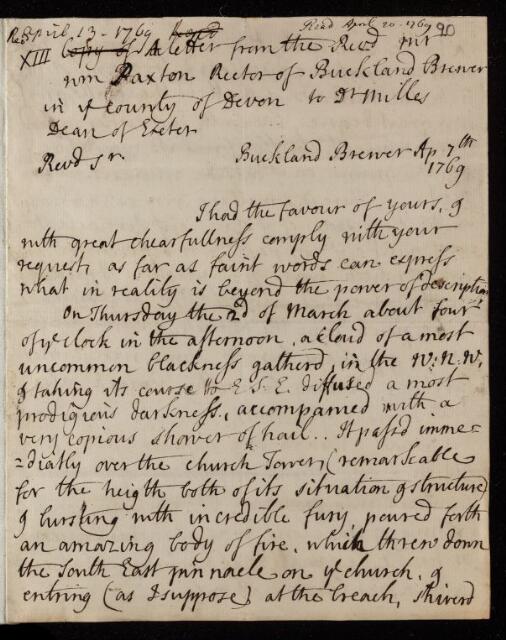 Read April 20. 1769 90
April. 13 - 1769
XIII Copy of A letter from the Revd mr
wm Paxton Rector of Buckland Brewer
in ye county of Devon to Dr Milles
Dean of Exeter
Buckland Brewer Ap 7th
1769
Revd Sr.
I had the favour of yours, &
with great chearfullness comply with your
request, as far as faint words can express
what in reality is beyond the power of description
On Thursday the 2d of March about four
of ye clock in the afternoon, a cloud of a most
uncommon blackness gatherd, in the W: N. W,
& taking its course to E S. E. diffused a most
prodigious darkness, accompanied with a
very copious shower of hail.. It passd imme=
=diatly over the church Tower, (remarkable
for the heigth both of its situation & structure)
& bursting with incredible fury, poured forth
an amazing body of fire, which threw down
the South East pinnacle on ye church, &
entring (as I suppose) at the breach, shiverd